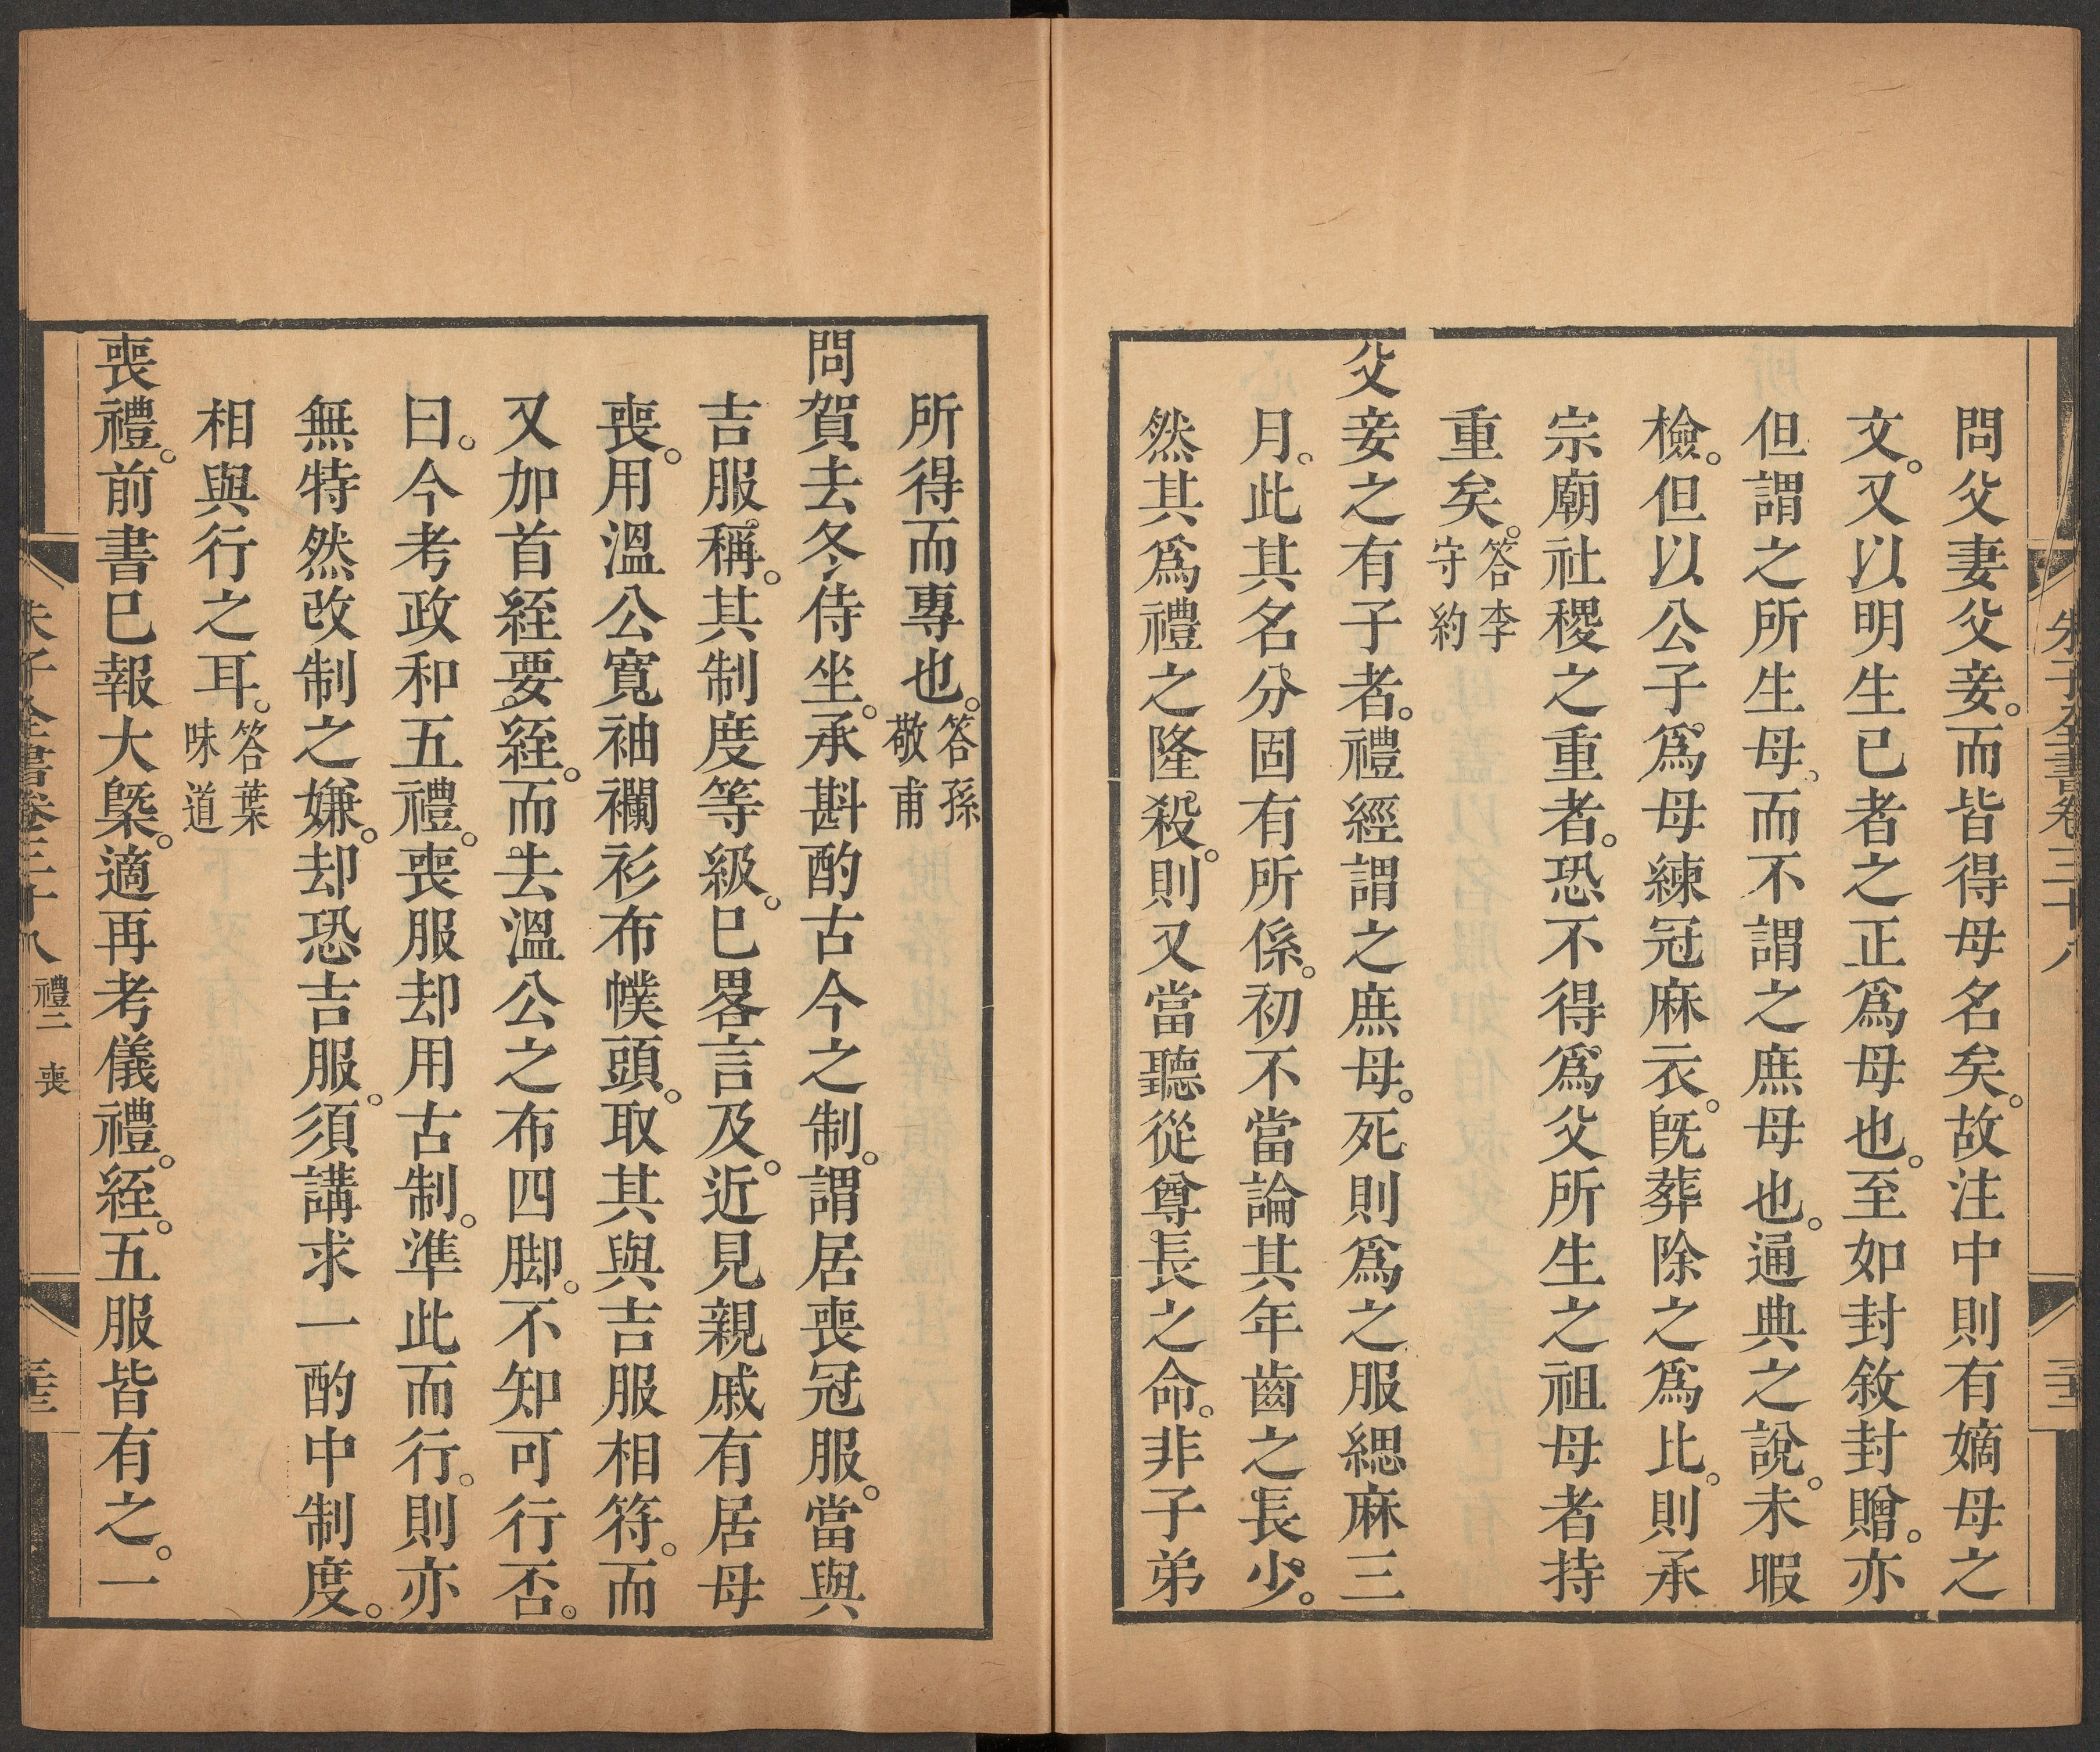 朱子全書卷三十八
問父妻父妾。而皆得母名矣。故注中則有嫡母之
文。又以明生己者之正爲母也。至如封敘封贈。亦
但謂之所生母。而不謂之庶母也。通典之說。未暇
檢。但以公子爲母練冠麻衣。旣葬除之爲比。則承
宗廟社稷之重者。恐不得爲父所生之祖母者持
重矣。答李守約
父妾之有子者。禮經謂之庶母。死則爲之服緦麻三
月。此其名分固有所係。初不當論其年齒之長少。
然其爲禮之隆殺。則又當聽從尊長之命。非子弟
所得而專也。答孫敬甫
問賀去冬侍坐。承斟酌古今之制。謂居喪冠服。當與
吉服稱。其制度等級。已畧言及。近見親戚有居母
喪。用溫公寬袖襴衫布幞頭。取其與吉服相符。而
又加首絰要絰。而去溫公之布四脚。不知可行否。
曰。今考政和五禮。喪服却用古制。準此而行。則亦
無特然改制之嫌。却恐吉服。須講求一酌中制度。
相與行之耳。答葉味道
喪禮。前書已報大槩。適再考儀禮。絰。五服皆有之。一
朱子全書卷三十八 禮二 喪